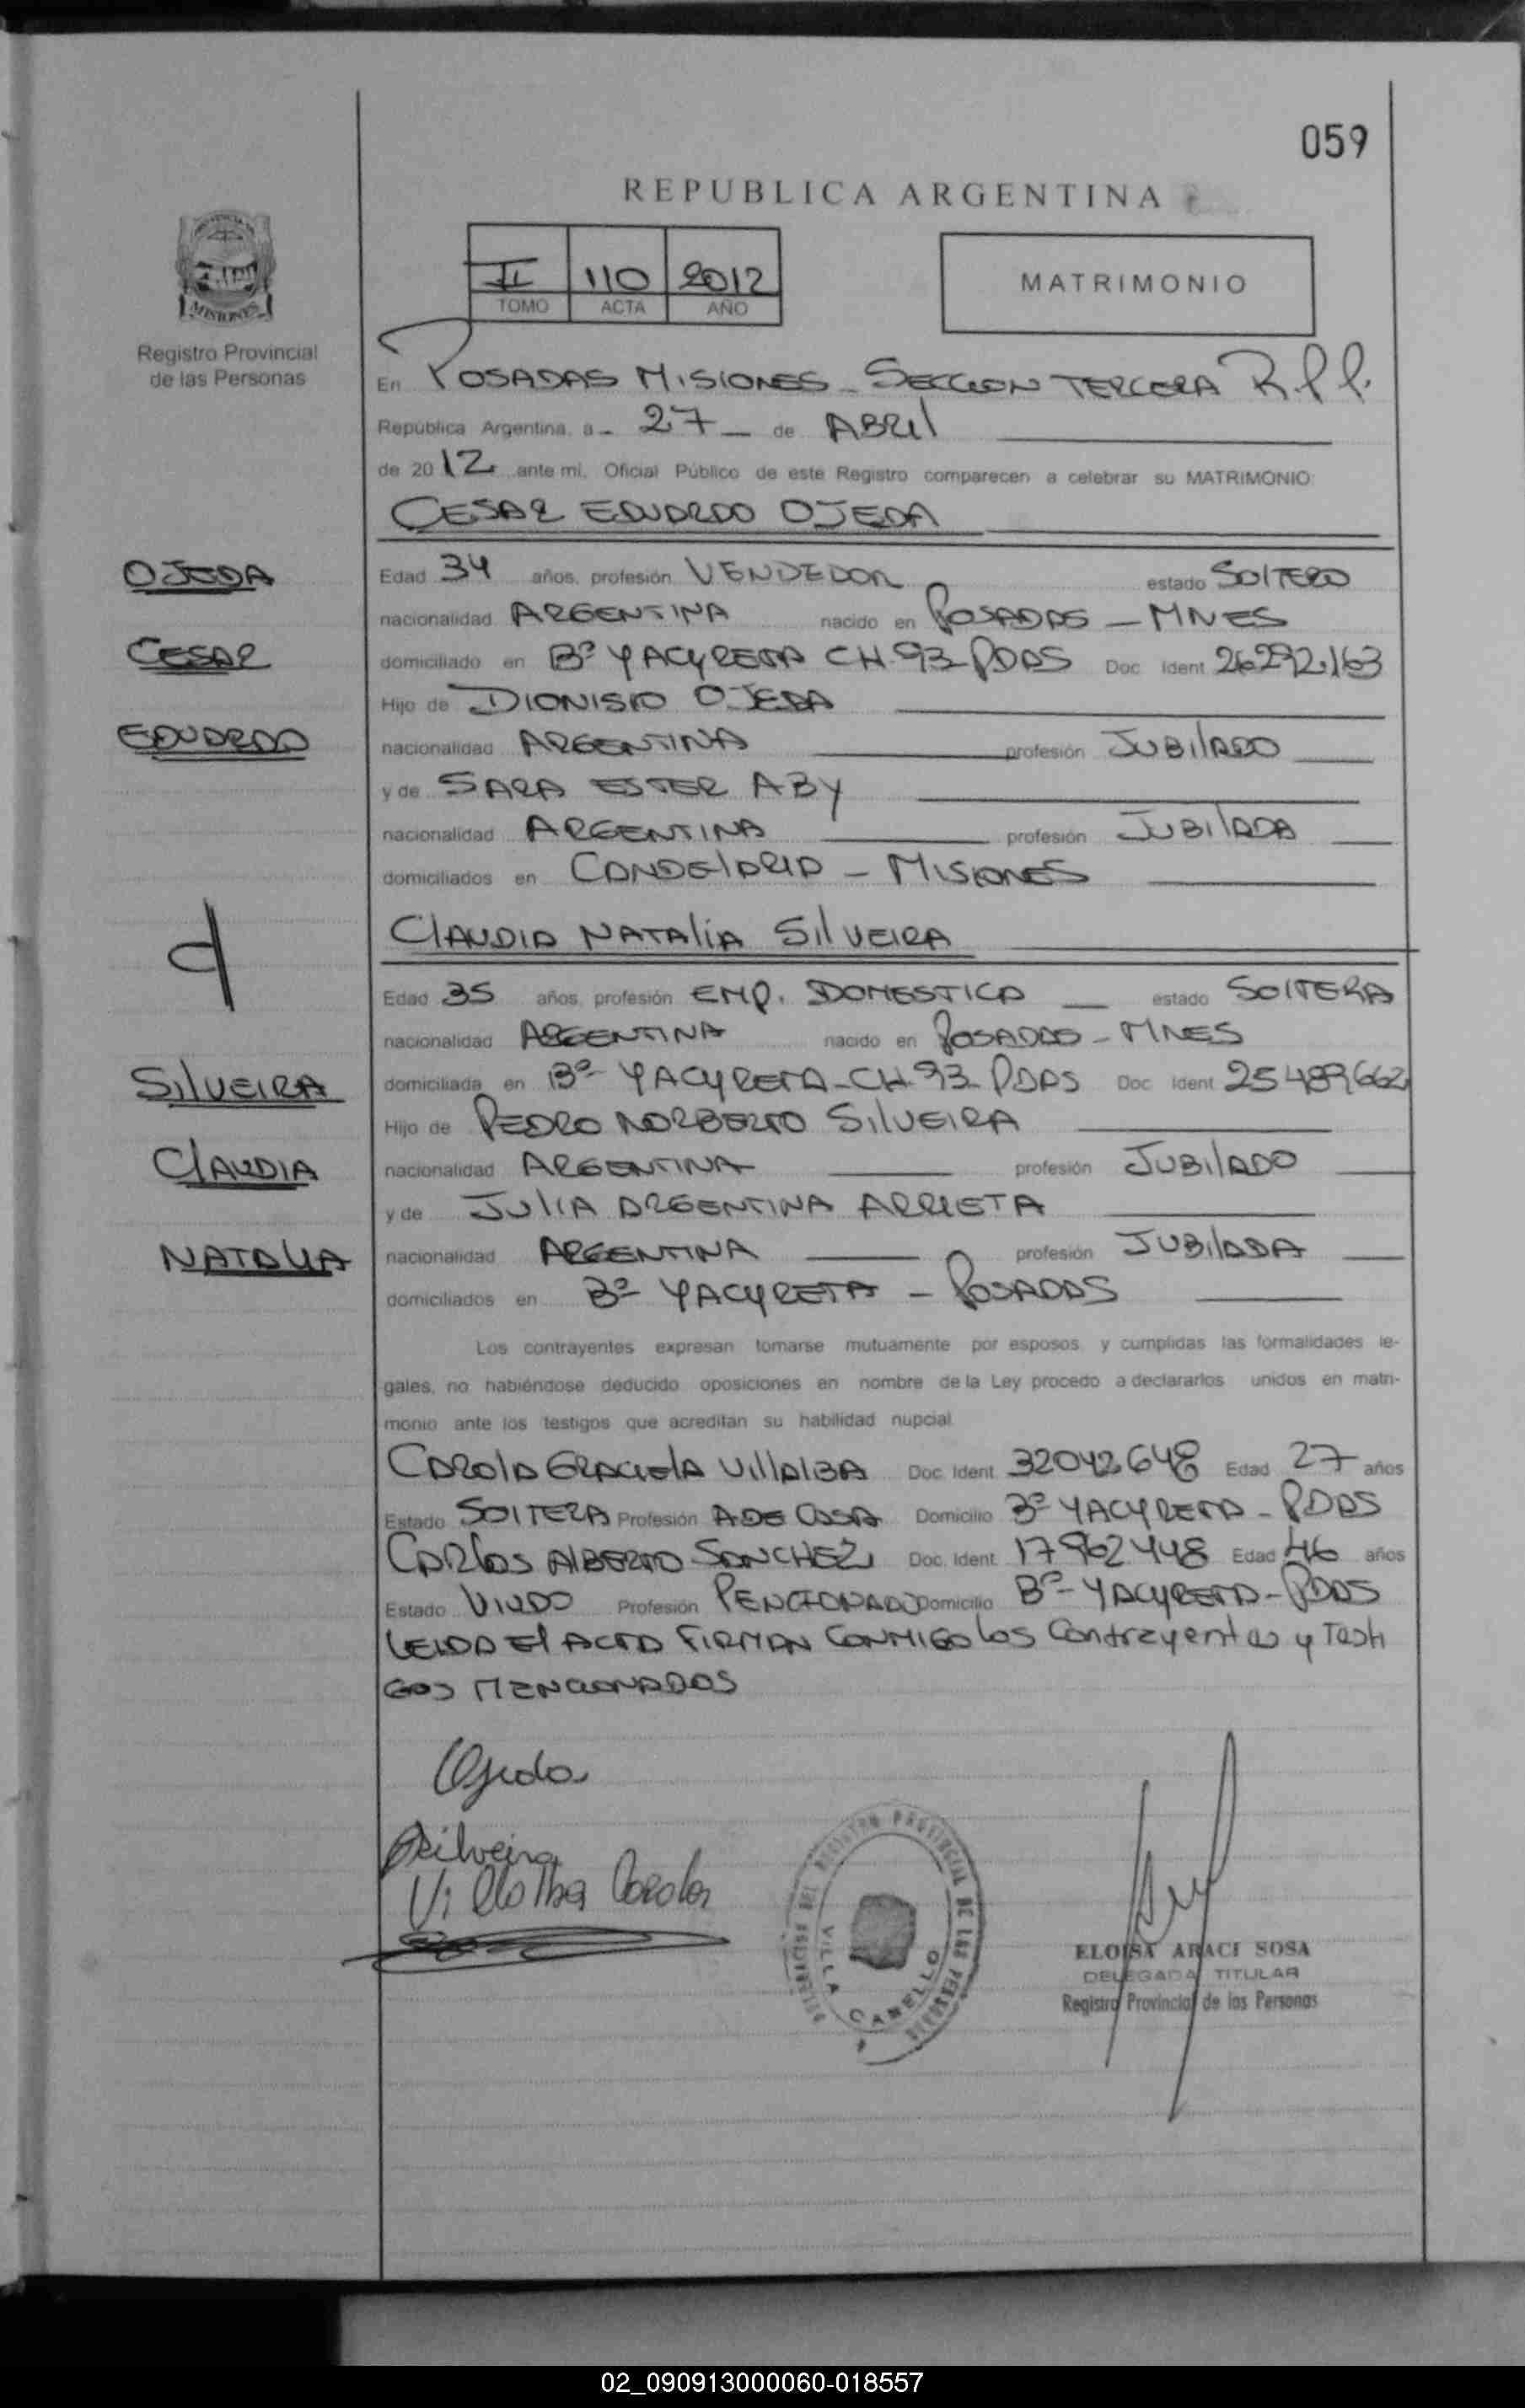 059
REPUBLICA ARGENTINA
MISIONES
Registro Provincial
de las Personas
II 110 2012
TOMO ACTA AÑO
MATRIMONIO
En POSADAS MISIONES - SECCION TERCERA R.P.P.
República Argentina, a - 27 - de ABRIL
de 2012 ante mi, Oficial Público de este Registro comparecen a celebrar su MATRIMONIO:
CESAR EDUARDO OJEDA
OJEDA
CESAR
EDUARDO
Edad 34 años, profesión VENDEDOR estado SOLTERO
nacionalidad ARGENTINA nacido en POSADAS - MNES
domiciliado en Bº YACYRETA CH. 93 - PDAS Doc. Ident. 26.292.163
Hijo de DIONISIO OJEDA
nacionalidad ARGENTINA profesión JUBILADO
y de SARA ESTER ABY
nacionalidad ARGENTINA profesión JUBILADA
domiciliados en CANDELARIA - MISIONES
CLAUDIA NATALIA SILVEIRA
SILVEIRA
CLAUDIA
NATALIA
Edad 35 años, profesión EMP. DOMESTICA estado SOLTERA
nacionalidad ARGENTINA nacido en POSADAS - MNES
domiciliada en Bº YACYRETA - CH. 93 - PDAS Doc. Ident. 25489662
Hijo de PEDRO NORBERTO SILVEIRA
nacionalidad ARGENTINA profesión JUBILADO
y de JULIA ARGENTINA ARRIETA
nacionalidad ARGENTINA profesión JUBILADA
domiciliados en Bº YACYRETA - POSADAS
Los contrayentes expresan tomarse mutuamente por esposos y cumplidas las formalidades le-
gales, no habiéndose deducido oposiciones en nombre de la Ley procedo a declararlos unidos en matri-
monio ante los testigos que acreditan su habilidad nupcial.
CAROLA GRACIELA VILLALBA Doc. Ident. 32042648 Edad 27 años
Estado SOLTERA Profesión A DE CASA Domicilio Bº YACYRETA - PDAS
CARLOS ALBERTO SANCHEZ Doc. Ident. 17962448 Edad 46 años
Estado VIUDO Profesión PENCIONADO Domicilio Bº - YACYRETA - PDAS
LEIDA EL ACTA FIRMAN CONMIGO LOS Contrayentes y Testi
GOS MENCIONADOS
Ojeda
Silveira
Villalba Carola
REGISTRO PROVINCIAL DE LAS PERSONAS
VILLA CABELLO
ELOISA ARACI SOSA
DELEGADA TITULAR
Registro Provincial de las Personas
02_090913000060-018557